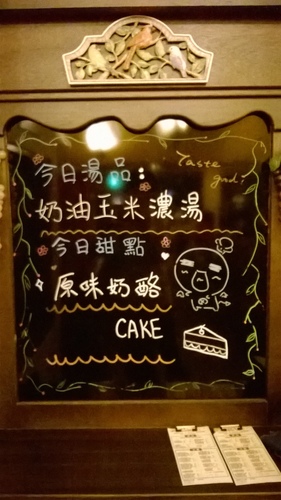 今日湯品:
Taste
god!
奶油玉米濃湯
今日甜點
原味奶酪
CAKE